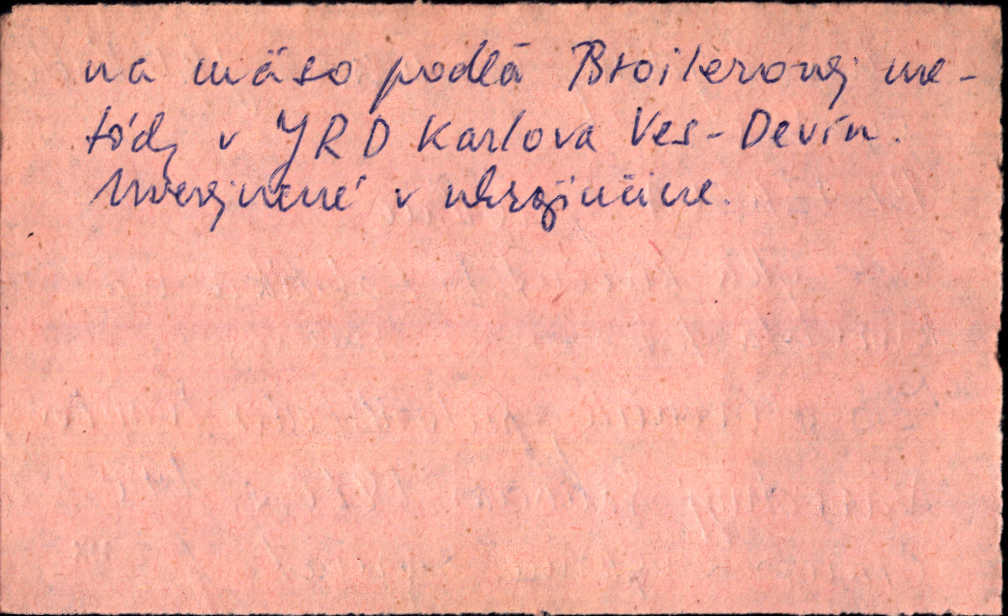 na mäso podľa Broilerovej me-
tódy v JRD Karlova Ves-Devín.
Uverejnené v ukrajinčine.